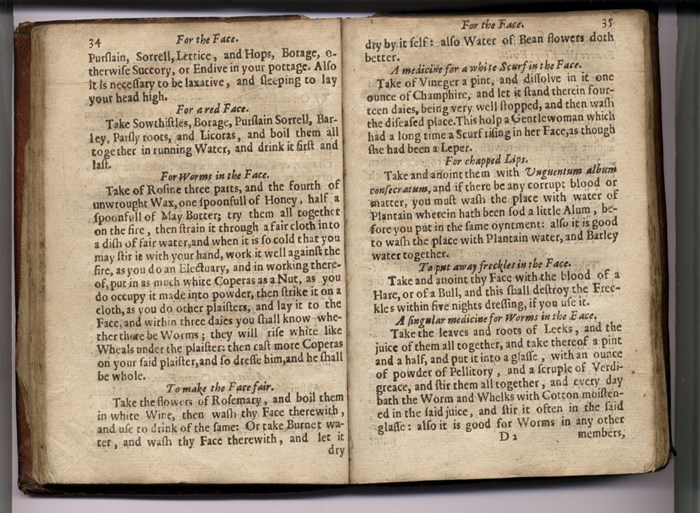 34 For the Face.
Purslain, Sorrell, Lettice, and Hops, Borage, o-
therwise Succory, or Endive in your pottage. Also
it is necessary to be laxative, and sleeping to lay
your head high.
For a red Face.
Take Sowthistles, Borage, Purslain Sorrell, Bar-
ley, Parsly roots, and Licoras, and boil them all
together in running Water, and drink it first and
last.
For Worms in the Face.
Take of Rosine three parts, and the fourth of
unwrought Wax, one spoonfull of Honey, half a
spoonfull of May Butter; try them all together
on the fire, then strain it through a fair cloth into
a dish of fair water, and when it is so cold that you
may stir it with your hand, work it well against the
fire, as you do an Electuary, and in working there-
of, put in as much white Coperas as a Nut, as you
do occupy it made into powder, then strike it on a
cloth, as you do other plaisters, and lay it to the
Face, and within three daies you shall know whe-
ther there be Worms; they will rise white like
Wheals under the plaister: then cast more Coperas
on your said plaister, and so dresse him, and he shall
be whole.
To make the Face fair.
Take the flowers of Rosemary, and boil them
in white Wine, then wash thy Face therewith,
and use to drink of the same: Or take Burnet wa-
ter, and wash thy Face therewith, and let it
dry
For the Face. 35
dry by it self: also Water of Bean flowers doth
better.
A medicine for a white Scurf in the Face.
Take of Vineger a pint, and dissolve in it one
ounce of Champhire, and let it stand therein four-
teen daies, being very well stopped, and then wash
the diseased place. This holp a Gentlewoman which
had a long time a Scurf rising in her Face, as though
she had been a Leper.
For chapped Lips.
Take and anoint them with Unguentum album
consecratum, and if there be any corrupt blood or
matter, you must wash the place with water of
Plantain wherein hath been sod a little Alum, be-
fore you put in the same oyntment: also it is good
to wash the place with Plantain water, and Barley
water together.
To put away freckles in the Face.
Take and anoint thy Face with the blood of a
Hare, or of a Bull, and this shall destroy the Frec-
kles within five nights dressing, if you use it.
A singular medicine for Worms in the Face.
Take the leaves and roots of Leeks, and the
juice of them all together, and take thereof a pint
and a half, and put it into a glasse, with an ounce
of powder of Pellitory, and a scruple of Verdi-
greace, and stir them all together, and every day
bath the Worm and Whelks with Cotton moisten-
ed in the said juice, and stir it often in the said
glasse: also it is good for Worms in any other
D 2 members,